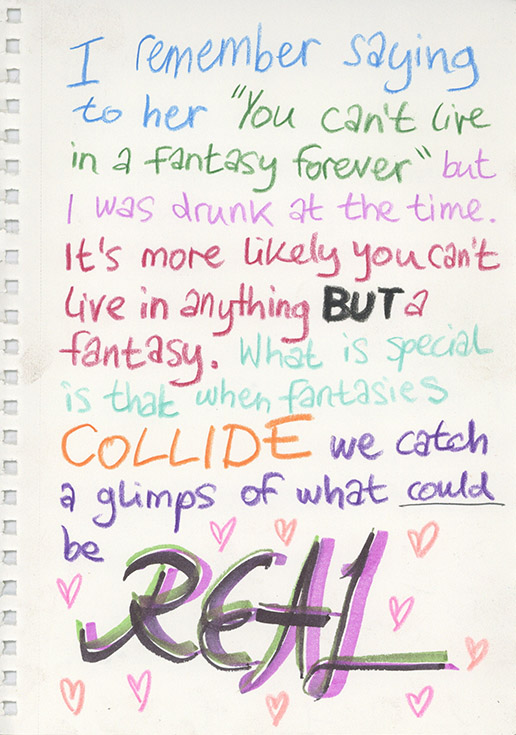 I remember saying
to her "You can't live
in a fantasy forever" but
I was drunk at the time.
It's more likely you can't
live in anything BUT a
fantasy. What is special
is that when fantasies
COLLIDE we catch
a glimps of what could
be
REAL